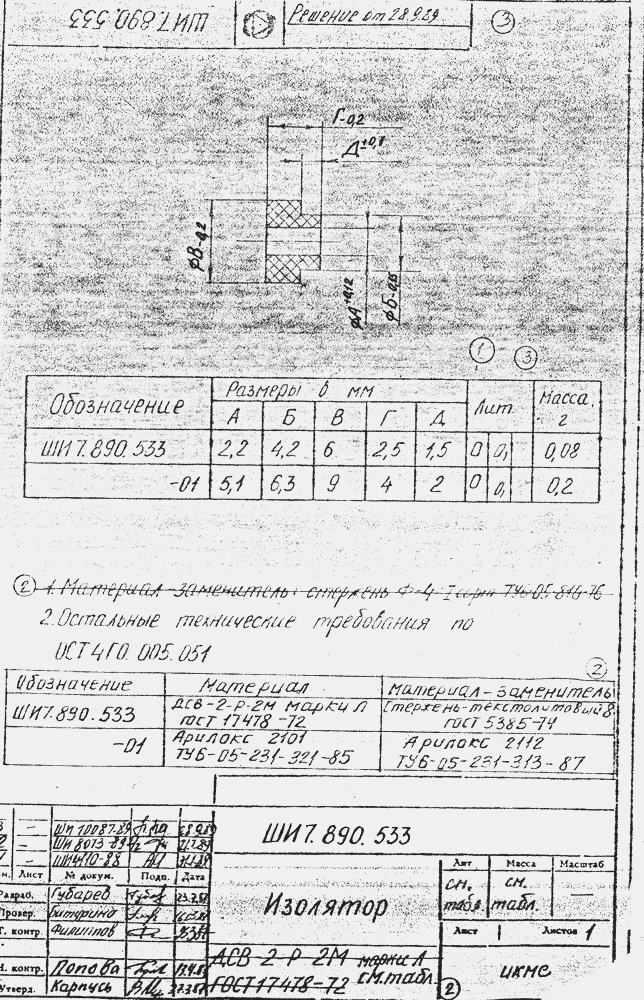 ШИ7.890.533
Решение от 28.9.89
3
Г-0,2
Д±0,1
φВ-0,2
φА+0,12
φБ-0,16
1 3
Обозначение Размеры в мм Лит Масса, г
А Б В Г Д
ШИ7.890.533 2,2 4,2 6 2,5 1,5 О О1 0,08
-01 5,1 6,3 9 4 2 О О1 0,2
2 1. Материал-заменитель: стержень Ф-4 I сорт ТУ6-05-810-76
2. Остальные технические требования по
ОСТ4 ГО. 005.051
2
Обозначение Материал материал-заменитель
ШИ7.890.533 ДСВ-2-Р-2М марки Л Стержень-текстолитовый 8
ГОСТ 17478-72 ГОСТ 5385-74
-01 Арилокс 2101 Арилокс 2112
ТУ6-05-231-321-85 ТУ6-05-231-313-87
3 – ШИ 10087-89 28.9.89
2 – ШИ 8073-89
– ШИ4110-88
Лист № докум. Подп. Дата
Разраб. Губарев
Провер.
Т. контр Филиппов
Н. контр. Попова
Утверд. Карпусь
ШИ7.890.533
Изолятор
Лит Масса Масштаб
см. табл см. табл.
Лист Листов 1
ДСВ-2-Р-2М марки Л
ГОСТ 17478-72 см.табл.
2
ИКМС